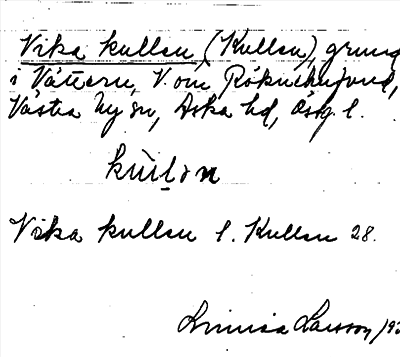 Vika kullen (Kullen), grund
i Vättern, V. om Röknehuvud,
Västra Ny sn, Aska hd, Ösg. l.
kùlən
Vika kullen l. Kullen 28.
Linnéa Larsson, 192